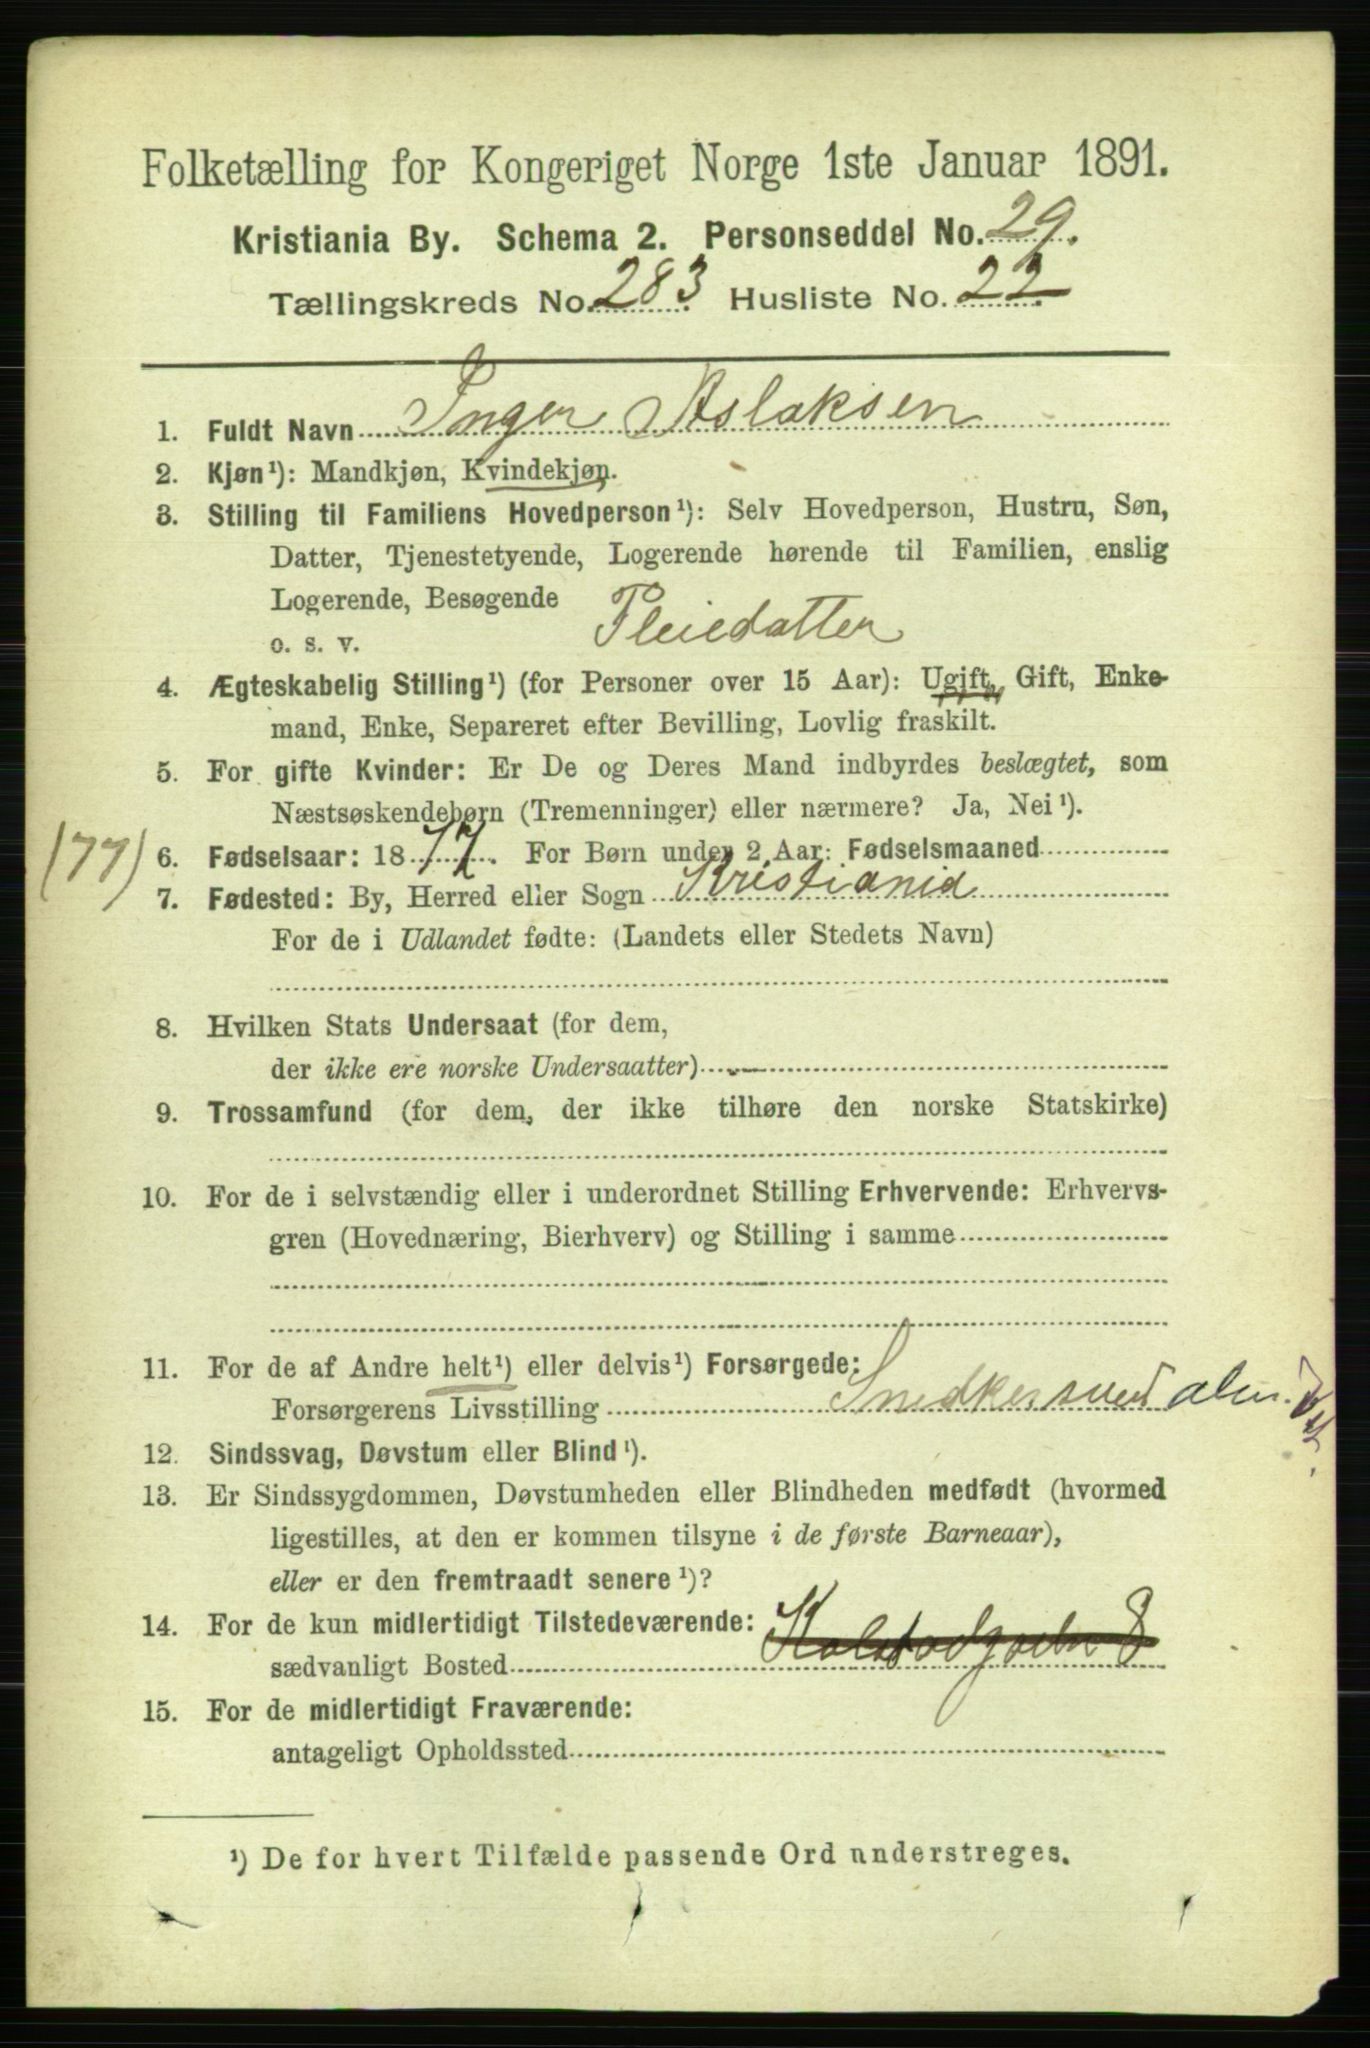 Folketælling for Kongeriget Norge 1ste Januar 1891.
Kristiania By. Schema 2. Personseddel No. 29.
Tællingskreds No. 283 Husliste No. 22
1. Fuldt Navn Inger Aslaksen
2. Kjøn¹): Mandkjøn, Kvindekjøn.
3. Stilling til Familiens Hovedperson¹): Selv Hovedperson, Hustru, Søn,
Datter, Tjenestetyende, Logerende hørende til Familien, enslig
Logerende, Besøgende
o. s. v. Pleiedatter
4. Ægteskabelig Stilling¹) (for Personer over 15 Aar): Ugift, Gift, Enke-
mand, Enke, Separeret efter Bevilling, Lovlig fraskilt.
5. For gifte Kvinder: Er De og Deres Mand indbyrdes beslægtet, som
Næstsøskendebørn (Tremenninger) eller nærmere? Ja, Nei¹).
(77) 6. Fødselsaar: 1877. For Børn under 2 Aar: Fødselsmaaned
7. Fødested: By, Herred eller Sogn Kristiania
For de i Udlandet fødte: (Landets eller Stedets Navn)
8. Hvilken Stats Undersaat (for dem,
der ikke ere norske Undersaatter)
9. Trossamfund (for dem, der ikke tilhøre den norske Statskirke)
10. For de i selvstændig eller i underordnet Stilling Erhvervende: Erhvervs-
gren (Hovednæring, Bierhverv) og Stilling i samme
11. For de af Andre helt¹) eller delvis¹) Forsørgede:
Forsørgerens Livsstilling Snedkersvend alm.
12. Sindssvag, Døvstum eller Blind¹).
13. Er Sindssygdommen, Døvstumheden eller Blindheden medfødt (hvormed
ligestilles, at den er kommen tilsyne i de første Barneaar),
eller er den fremtraadt senere¹)?
14. For de kun midlertidigt Tilstedeværende:
sædvanligt Bosted 8
15. For de midlertidigt Fraværende:
antageligt Opholdssted
¹) De for hvert Tilfælde passende Ord understreges.